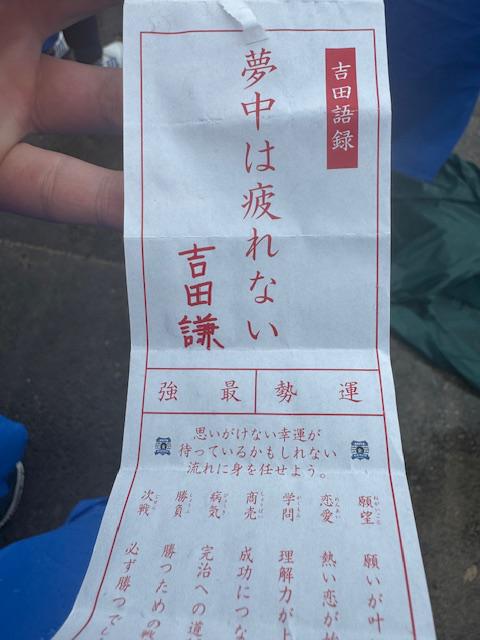 吉田語録
夢中は疲れない
吉田謙
運勢 最強
思いがけない幸運が
待っているかもしれない
流れに身を任せよう。
願望 願いが叶
恋愛 熱い恋が
学問 理解力が上
商売 成功につな
病気 完治への道
勝負 勝つための
次戦 必ず勝つで